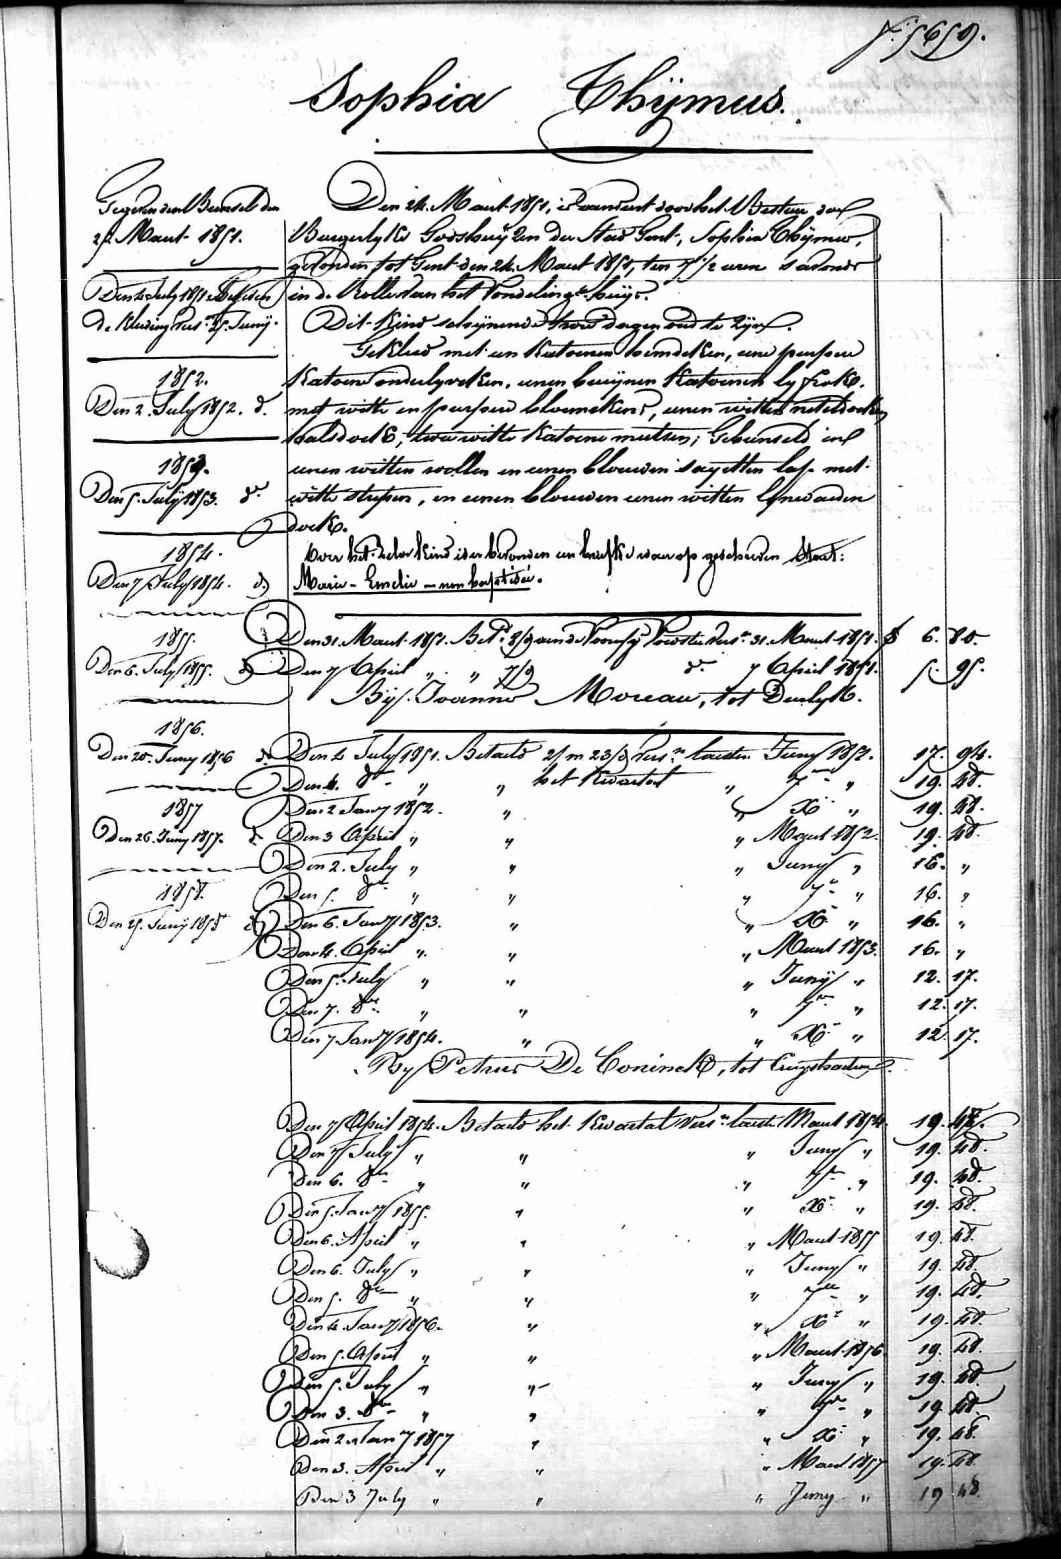 N.° 5659.
Sophia Thijmus.
Gegeven den Bunsel den
25. Maart 1851.
Den 4 July 1851
de kleeding vers.n 25. Junij.
1852.
Den 2. July 1852. d.o
1853.
Den 5. Julij 1853. d.o
1854.
Den 7 July 1854. d.o
1855.
Den 6. July 1855. d.o
1856.
Den 20. Juny 1856 d.o
1857
Den 26. Juny 1857. d.o
1858.
Den 25. Junij 1858 d.o
Den 24. Maart 1851, is aenveert door het Bestuer der
Burgerlyke Godshuyzen der Stad Gent, Sophia Thijmus,
gevonden tot Gent den 24. Maart 1851, ten 7 1/2 uren s'avonds
in de Rolle van het Vondelingshuijs.
Dit kind schijnende twee dagen oud te zijn.
Gekleed met een katoenen hemdeken, een purpere
katoen onderlyveken, eenen bruijnen katoenen lyfrok,
met witte en purpere bloemekens, eenen witten neteldoeken
halsdoek, twee witte katoene mutsen; Gebunseld in
eenen witten wollen en eenen blauwen sayetten lap met
witte strepen, en eenen blouwen eenen witten lynwaeden
doek.
Over het zelve kind is er bevonden een briefke waer op geschreven staet:
Marie - Emelie - non baptisée.
Den 31. Maart 1851. Bet.d 8/9 aen de Voorsz Voedster vers.n 31. Maart 1851. f 6. 80.
Den 7 April " " 7/9 d.o 7 April 1851. 5. 95.
Bij Joanna Moreau, tot Denlyk.
Den 4 July 1851. Betaeld 2/m 23/d vers.n laesten Juny 1851. 17. 94.
Den 4. 8.bre " " het kwartael " 7.bre " 19. 48.
Den 2 Jan.y 1852. " " X.bre " 19. 48.
Den 3 April " " " Maart 1852. 19. 48.
Den 2. July " " " Juny " 16. "
Den 5. 8.bre " " " 7.bre " 16. "
Den 6. Jan.y 1853. " " X.bre " 16. "
Den 4. April " " " Maart 1853. 16. "
Den 5. July " " " Junij " 12. 17.
Den 7. 8.bre " " " 7.bre " 12. 17.
Den 7 Jan.y 1854. " " X.bre " 12. 17.
By Petrus De Coninck, tot Cruyshautem.
Den 7 April 1854. Betaeld het kwartael vers.n laest. Maart 1854. 19. 48.
Den 7 July " " " Juny " 19. 48.
Den 6. 8.bre " " " 7.bre " 19. 48.
Den 5. Jan.y 1855. " " X.bre " 19. 48.
Den 6. April " " " Maart 1855 19. 48.
Den 6. July " " " Juny " 19. 48.
Den 5. 8.bre " " " 7.bre " 19. 48.
Den 4. Jan.y 1856. " " X.bre " 19. 48.
Den 5. April " " " Maart 1856 19. 48.
Den 5. July " " " Juny " 19. 48.
Den 3. 8.bre " " " 7.bre " 19. 48.
Den 2 Jan.y 1857 " " X.bre " 19. 48.
Den 3. April " " " Maart 1857 19. 48.
Den 3 July " " " Juny " 19 48